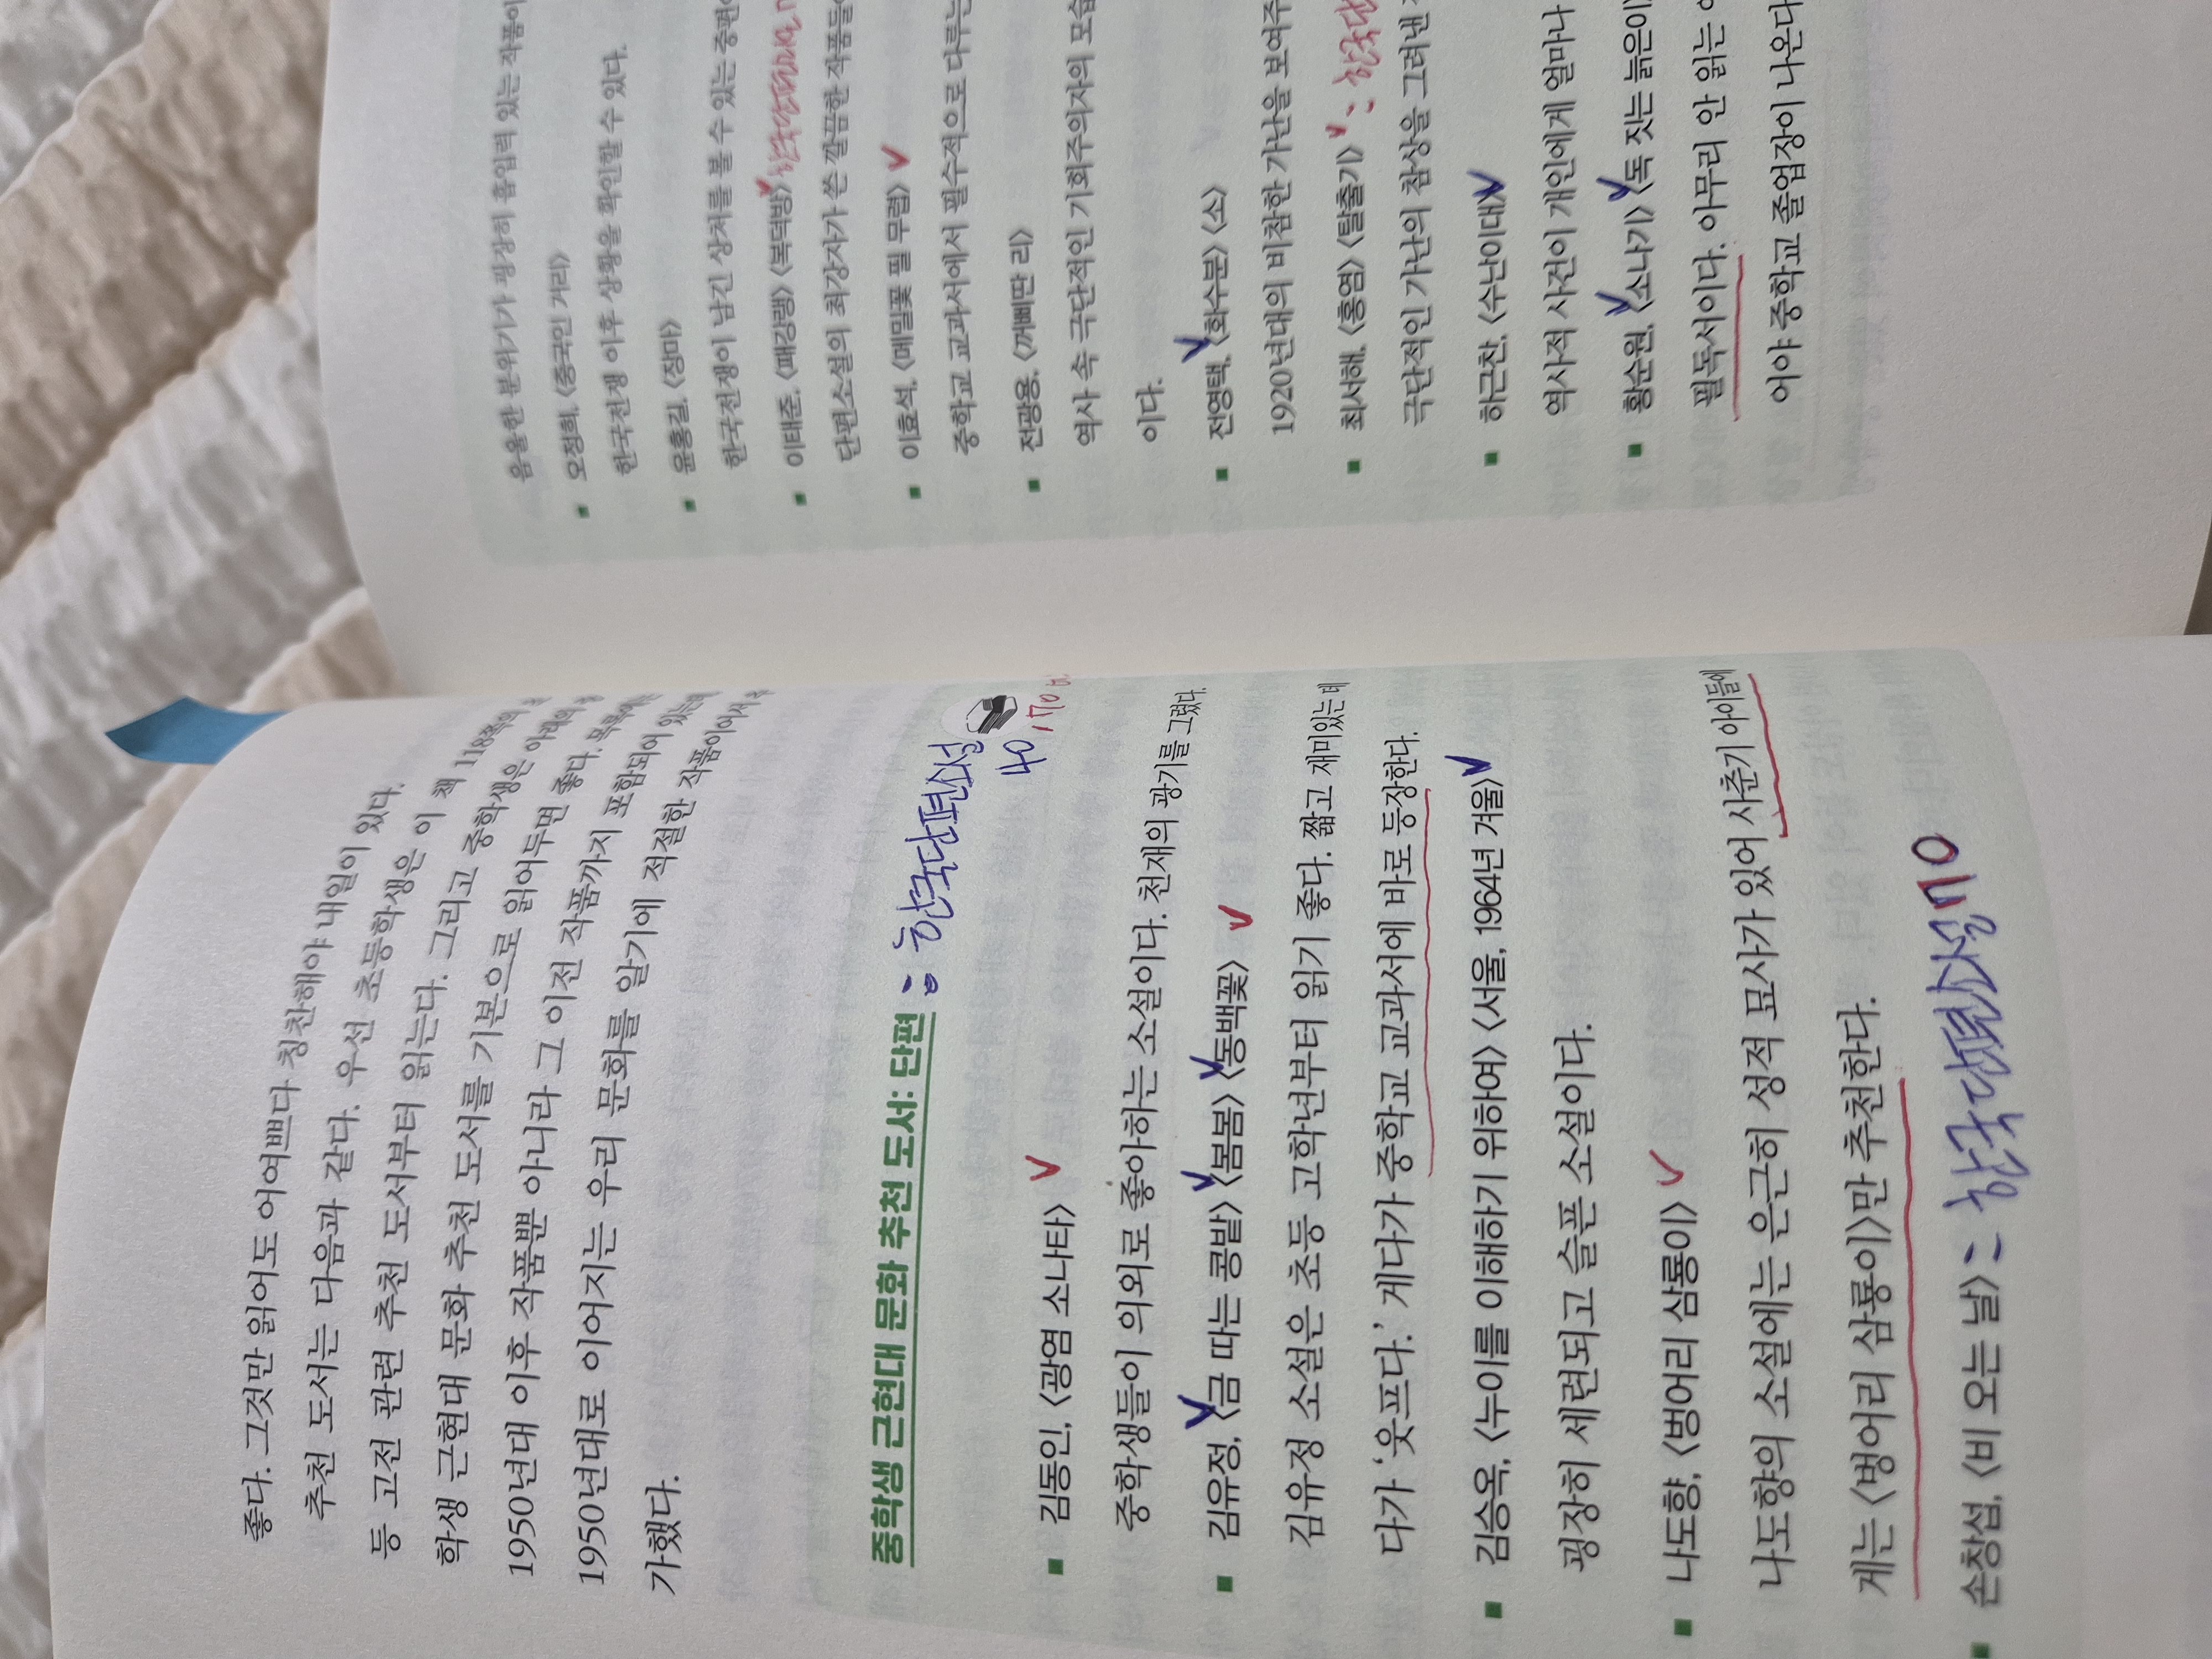 좋다. 그것만 읽어도 어여쁘다 칭찬해야 내일이 있다.
추천 도서는 다음과 같다. 우선 초등학생은 이 책 118쪽의
등 고전 관련 추천 도서부터 읽는다. 그리고 중학생은 아래의 중
학생 근현대 문화 추천 도서를 기본으로 읽어두면 좋다. 목록에는
1950년대 이후 작품뿐 아니라 그 이전 작품까지 포함되어 있는데
1950년대로 이어지는 우리 문화를 알기에 적절한 작품이어서 추
가했다.
중학생 근현대 문화 추천 도서: 단편 = 한국단편소설
40, 70
김동인, 〈광염 소나타〉 ✓
중학생들이 의외로 좋아하는 소설이다. 천재의 광기를 그렸다.
김유정, 〈금 따는 콩밭〉 〈봄봄〉 〈동백꽃〉 ✓
김유정 소설은 초등 고학년부터 읽기 좋다. 짧고 재미있는 데
다가 ‘웃프다.’ 게다가 중학교 교과서에 바로 등장한다.
김승옥, 〈누이를 이해하기 위하여〉 〈서울, 1964년 겨울〉 ✓
굉장히 세련되고 슬픈 소설이다.
나도향, 〈벙어리 삼룡이〉 ✓
나도향의 소설에는 은근히 성적 묘사가 있어 사춘기 아이들에
게는 〈벙어리 삼룡이〉만 추천한다.
손창섭, 〈비 오는 날〉 = 한국단편소설 70
음울한 분위기가 굉장히 흡입력 있는 작품이
오정희, 〈중국인 거리〉
한국전쟁 이후 상황을 확인할 수 있다.
윤흥길, 〈장마〉
한국전쟁이 남긴 상처를 볼 수 있는 중편
이태준, 〈패강랭〉 〈복덕방〉 ✓ 한국단편
단편소설의 최강자가 쓴 깔끔한 작품들
이효석, 〈메밀꽃 필 무렵〉 ✓
중학교 교과서에서 필수적으로 다루는
전광용, 〈꺼삐딴 리〉
역사 속 극단적인 기회주의자의 모습
이다.
전영택, 〈화수분〉 〈소〉
1920년대의 비참한 가난을 보여주
최서해, 〈홍염〉 〈탈출기〉 ✓ = 한국단
극단적인 가난의 참상을 그려낸
하근찬, 〈수난이대〉 ✓
역사적 사건이 개인에게 얼마나
황순원, 〈소나기〉 〈독 짓는 늙은이〉
필독서이다. 아무리 안 읽는
어야 중학교 졸업장이 나온다